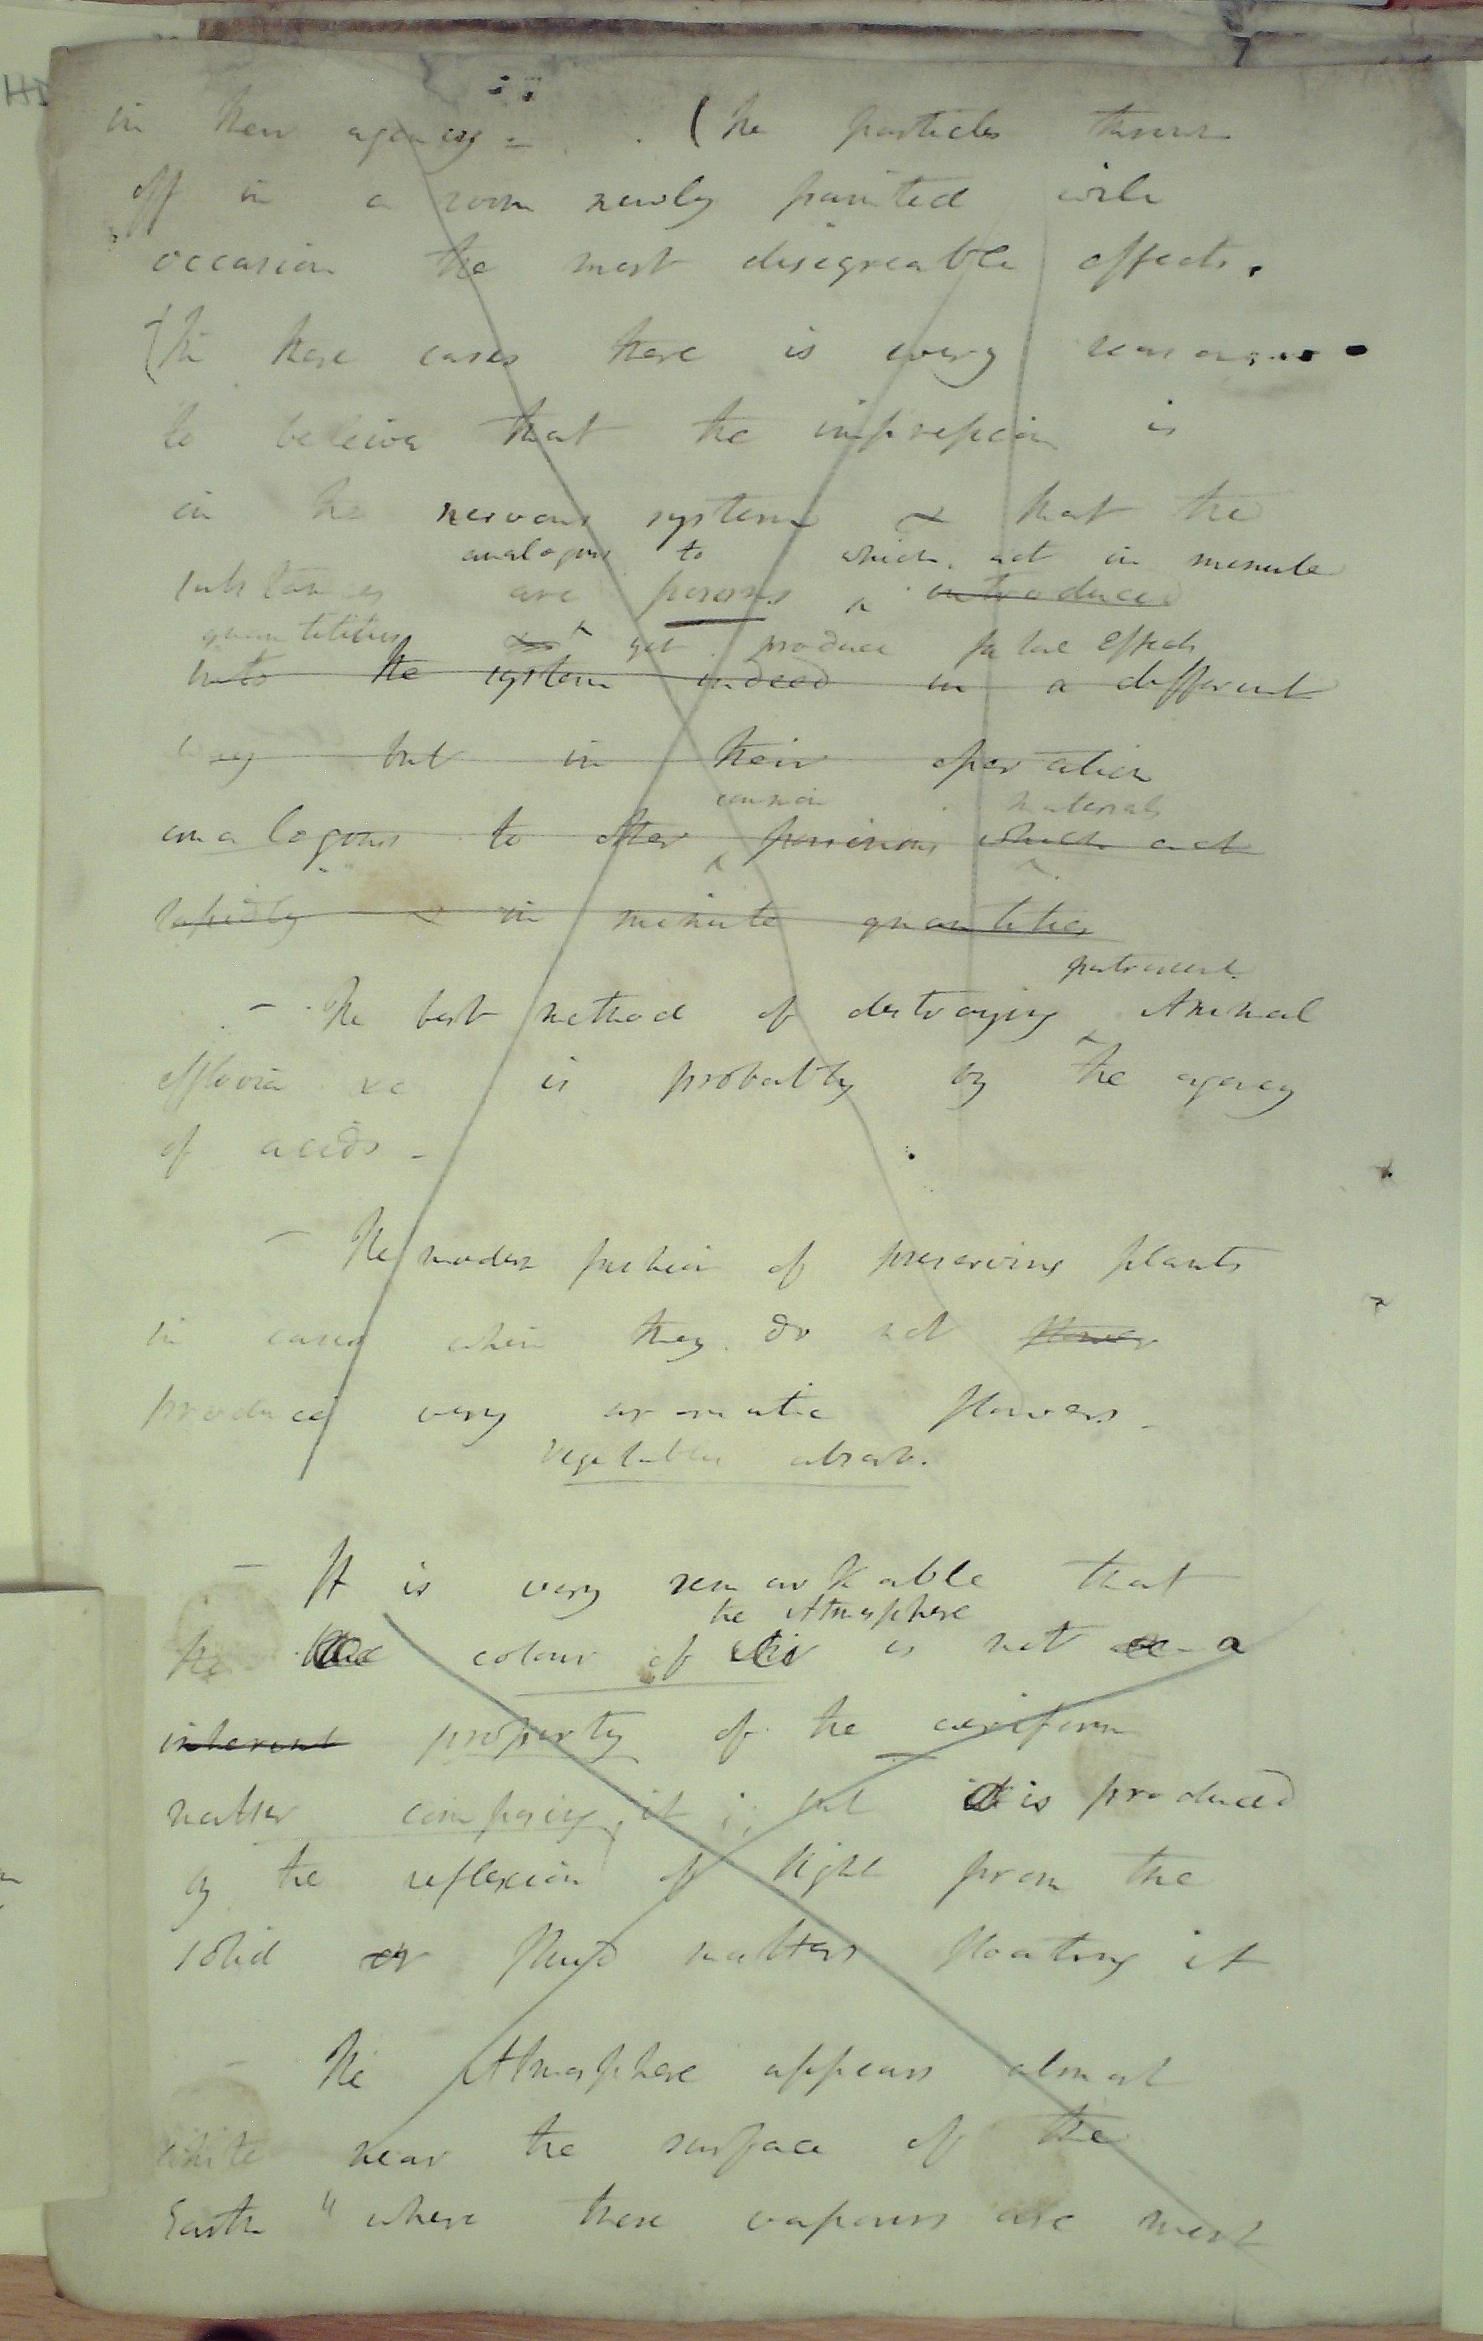 in their agency = . (The particles thrown
off in a room newly painted will
occasion the most disagreable effects.
(In these cases there is every reason
to beleive that the impression is
in the nervous system & that the
analogous to which act in minute
substances are poisons ^ introduced
quantities & ^ yet produce fatal effects
into the system indeed in a different
way but in their operation
common materials
analogous to other ^ poisinous which act
rapidly & in minute quantities
putrescent
– The best method of destroying ^ Animal
effluvia &c is probably by the agency
of acids –
– The modern fashion of preserving plants
in cases when they do not flower
produced very aromatic flowers –
Vegetables absorb.
– It is very remarkable that
the Atmosphere
the colour of air is not a
inherent property of the aeriform
matter composing it ; but it is produced
by the reflexion of light from the
solid or fluid matters floating it
– The Atmosphere appears almost
white near the surface of the
Earth " where these vapours are most